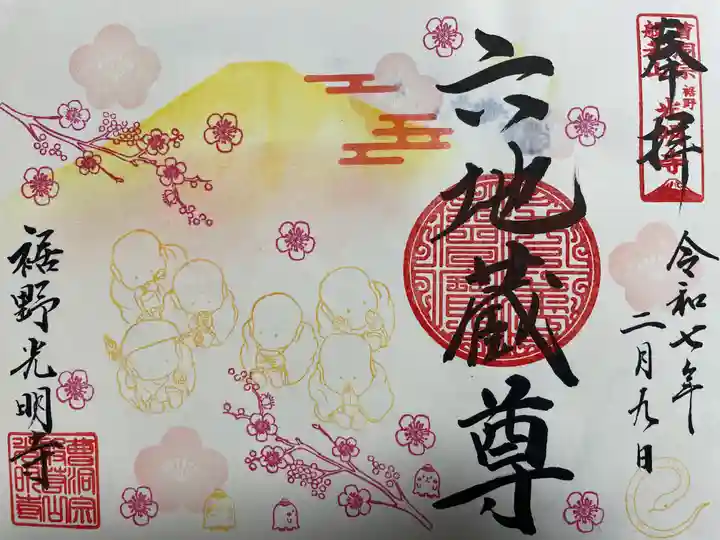 奉拝
令和七年
二月九日
六地蔵尊
裾野光明寺